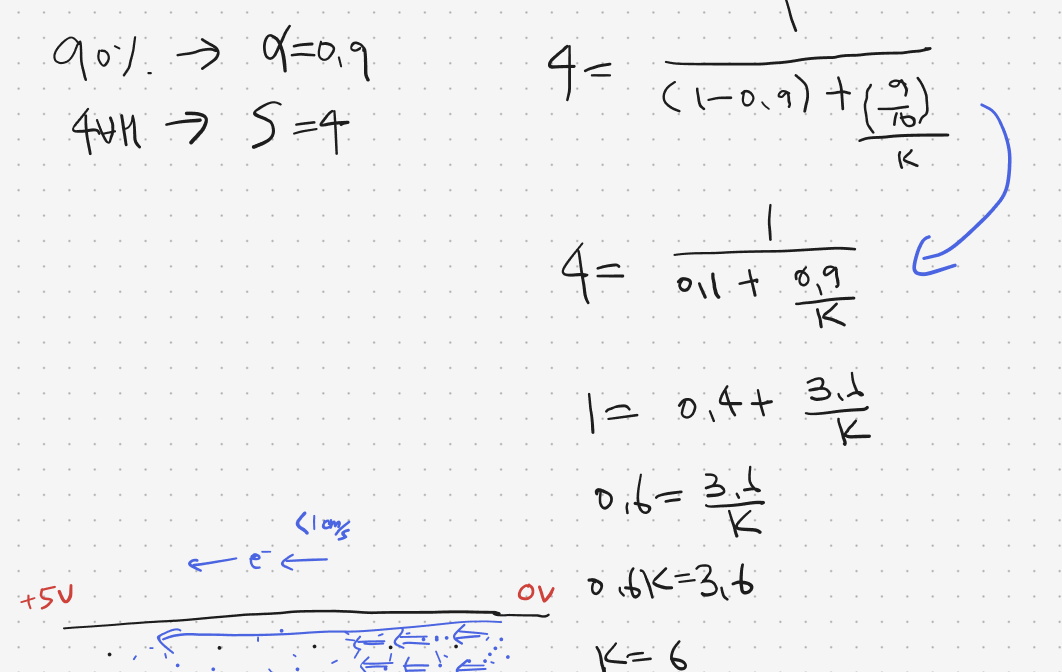 90%. → α=0,9
4배 → S=4
4= 1/((1-0,9)+(9/10)/K)
4= 1/(0,1+0,9/K)
1= 0,4+ 3,6/K
0,6= 3,6/K
0,6K=3,6
K=6
<1cm/s
← e⁻ ←
+5V 0V